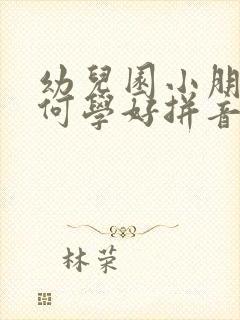 幼兒園小朋
何學好拼音
林荣